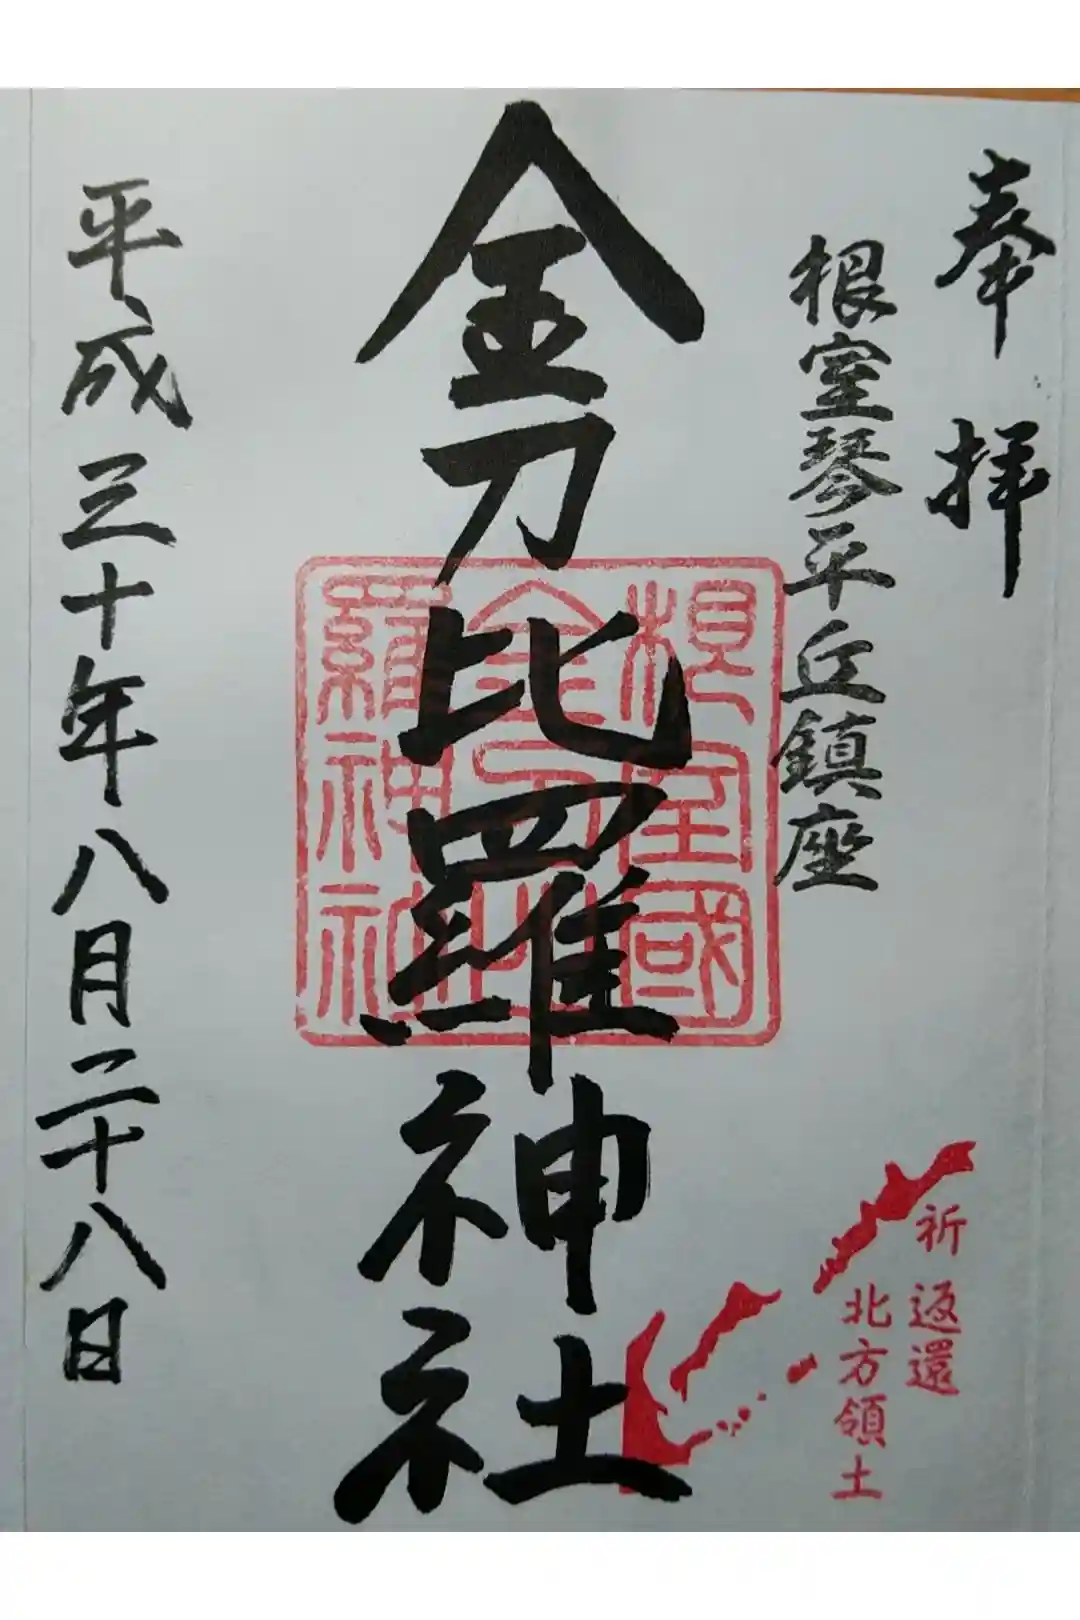 奉拝
根室琴平丘鎮座
金刀比羅神社
根室國
金刀比
羅神社
平成三十年八月二十八日
祈 返還
北方領土